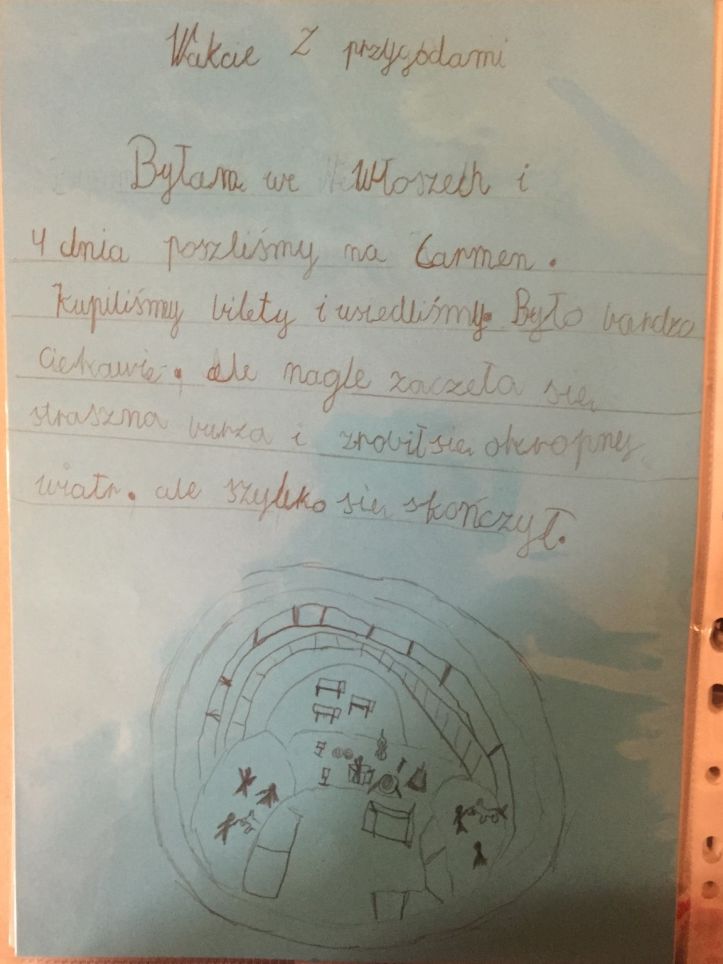 Wakcie z przygodami
Byłam we Włoszech i
4 dnia poszliśmy na Carmen.
Kupiliśmy bilety i usiedliśmy. Było bardzo
ciekawie. ale nagle zaczeła się
straszna burza i zrobił się okropny
wiatr. ale szybko się skończył.